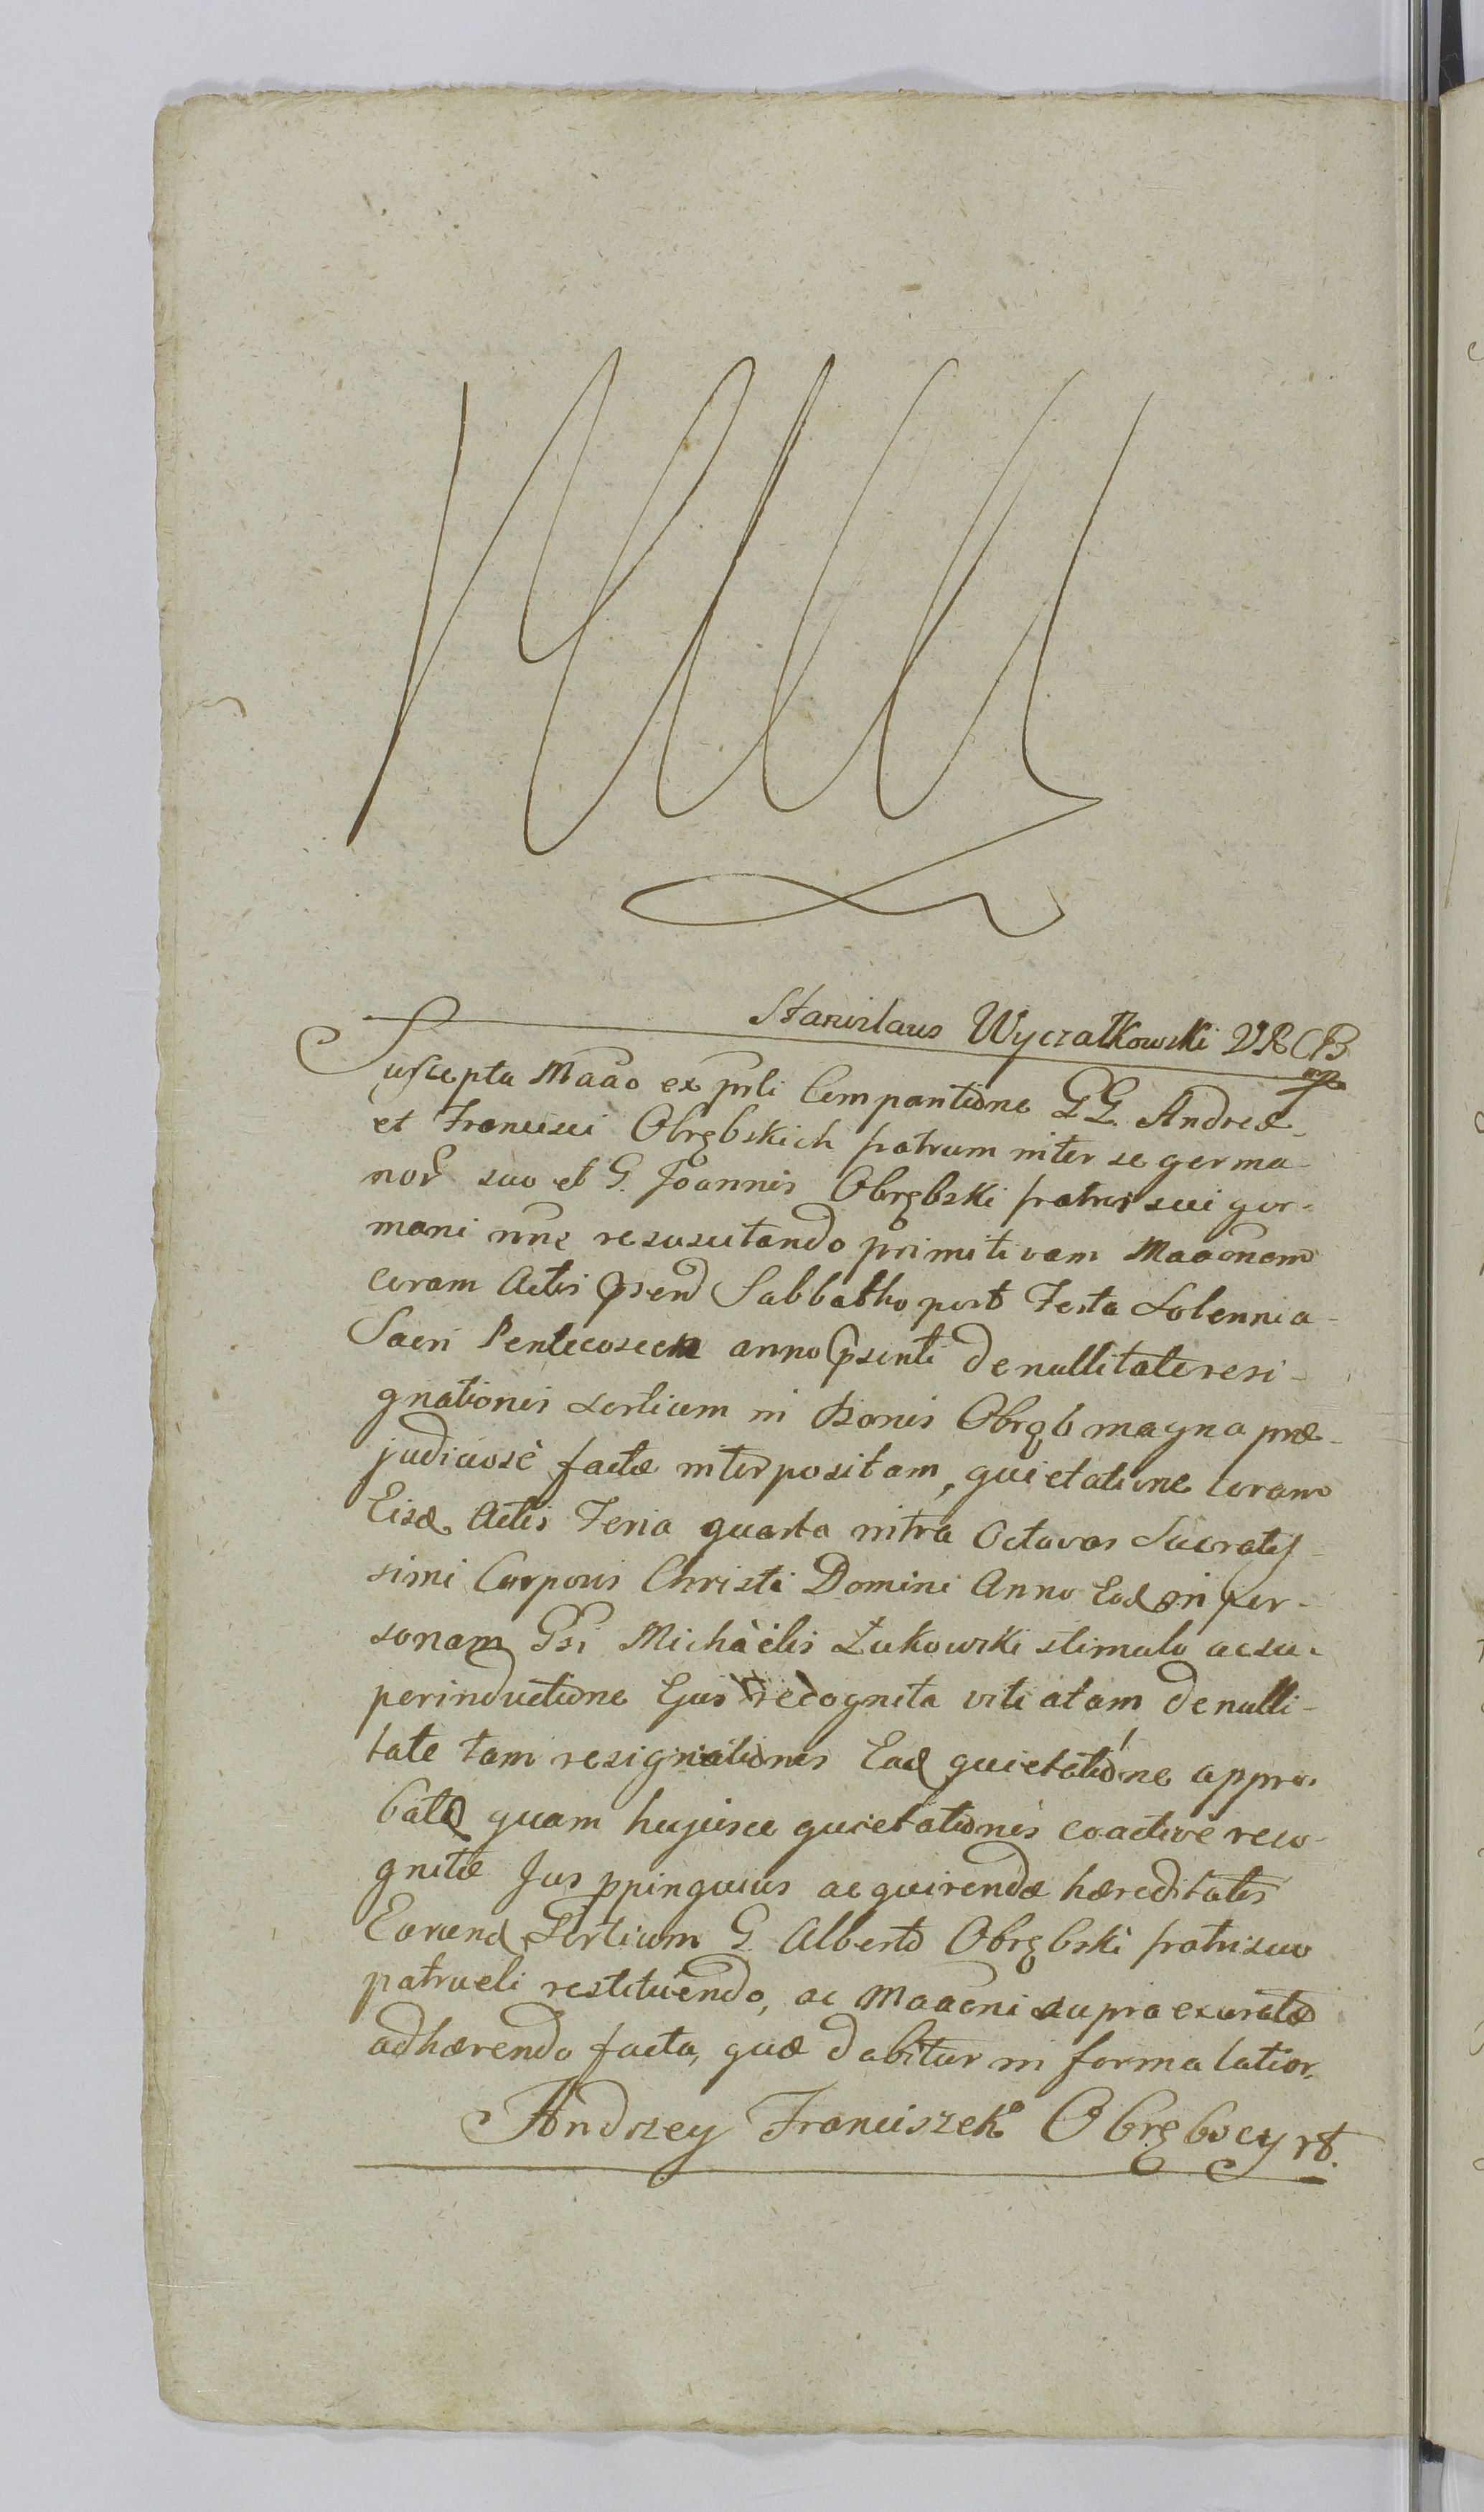 Stanislaus Wyczałkowski VRCB
mp
Suscepta Maāo ex psli Comparitione GG. Andreæ
et Francisci Obrębskich fratrum inter se germa-
nor suo et G. Joannis Obrębski fratris sui ger-
mani nõe resuscitando primitivam Maãonem
coram Actis Sabbatho post Festa Solennia
Sacri Pentecostes anno psenti de nullitate resi-
gnationis sortium in bonis Obręb magna præ-
judiciose factæ interpositam, quietatione coram
Eisd Actis Feria quarta intra Octavas Sacratis-
simi Corporis Christi Domini Anno Eod in per-
sonam Gsi Michaëlis Łukowski stimulo ac su-
perinductione Ejus recognita vitiatam de nulli-
tate tam resignationis Ead quietatione appro-
batæ quam hujusce quietationis coactivè reco-
gnitæ Jus ppinquius acquirendæ hæreditatis
Earund Sortium G. Alberto Obrębski fratri suo
patrueli restituendo, ac Maãoni supra exaratæ
adhærendo facta, quæ dabitur in forma latior.
Andrzey Franciszek Obrębscy rb.